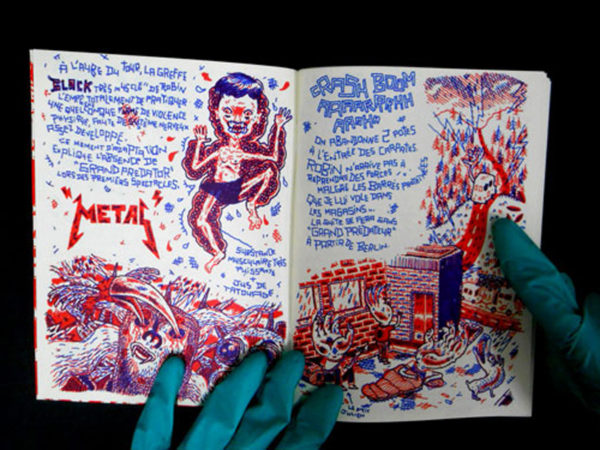 À L'AUBE DU TOUR, LA GREFFE
BLOCK TRÈS MUSCLÉ DE ROBIN
L'EMPE TOTALEMENT DE PRATIQUER
UNE QUELCONQUE FORME DE VIOLENCE
PHYSIQUE, FAUTE
ASSEZ DEVELOPPÉ.
CE MOMENT D'ADAPTATION
EXPLIQUE L'ABSENCE DE
GRAND PREDATOR
LORS DES PREMIERS SPECTACLES.
"METAL"
SUBSTANCE
MUSCULAIRE TRÈS
PUISSANTE
JUS DE
CRASH BOOM
ON ABANDONNE 2 POTES
À L'ENTRÉE DES CARPATES
ROBIN N'ARRIVE PAS À
REPRENDRE DES FORCES
MALGRÉ LES BARRES PROTEINÉES
QUE JE LUI VOLE DANS
LES MAGASINS...
LA SUITE SE FERA SANS
"GRAND PREDATEUR"
À PARTIR DE BERLIN.